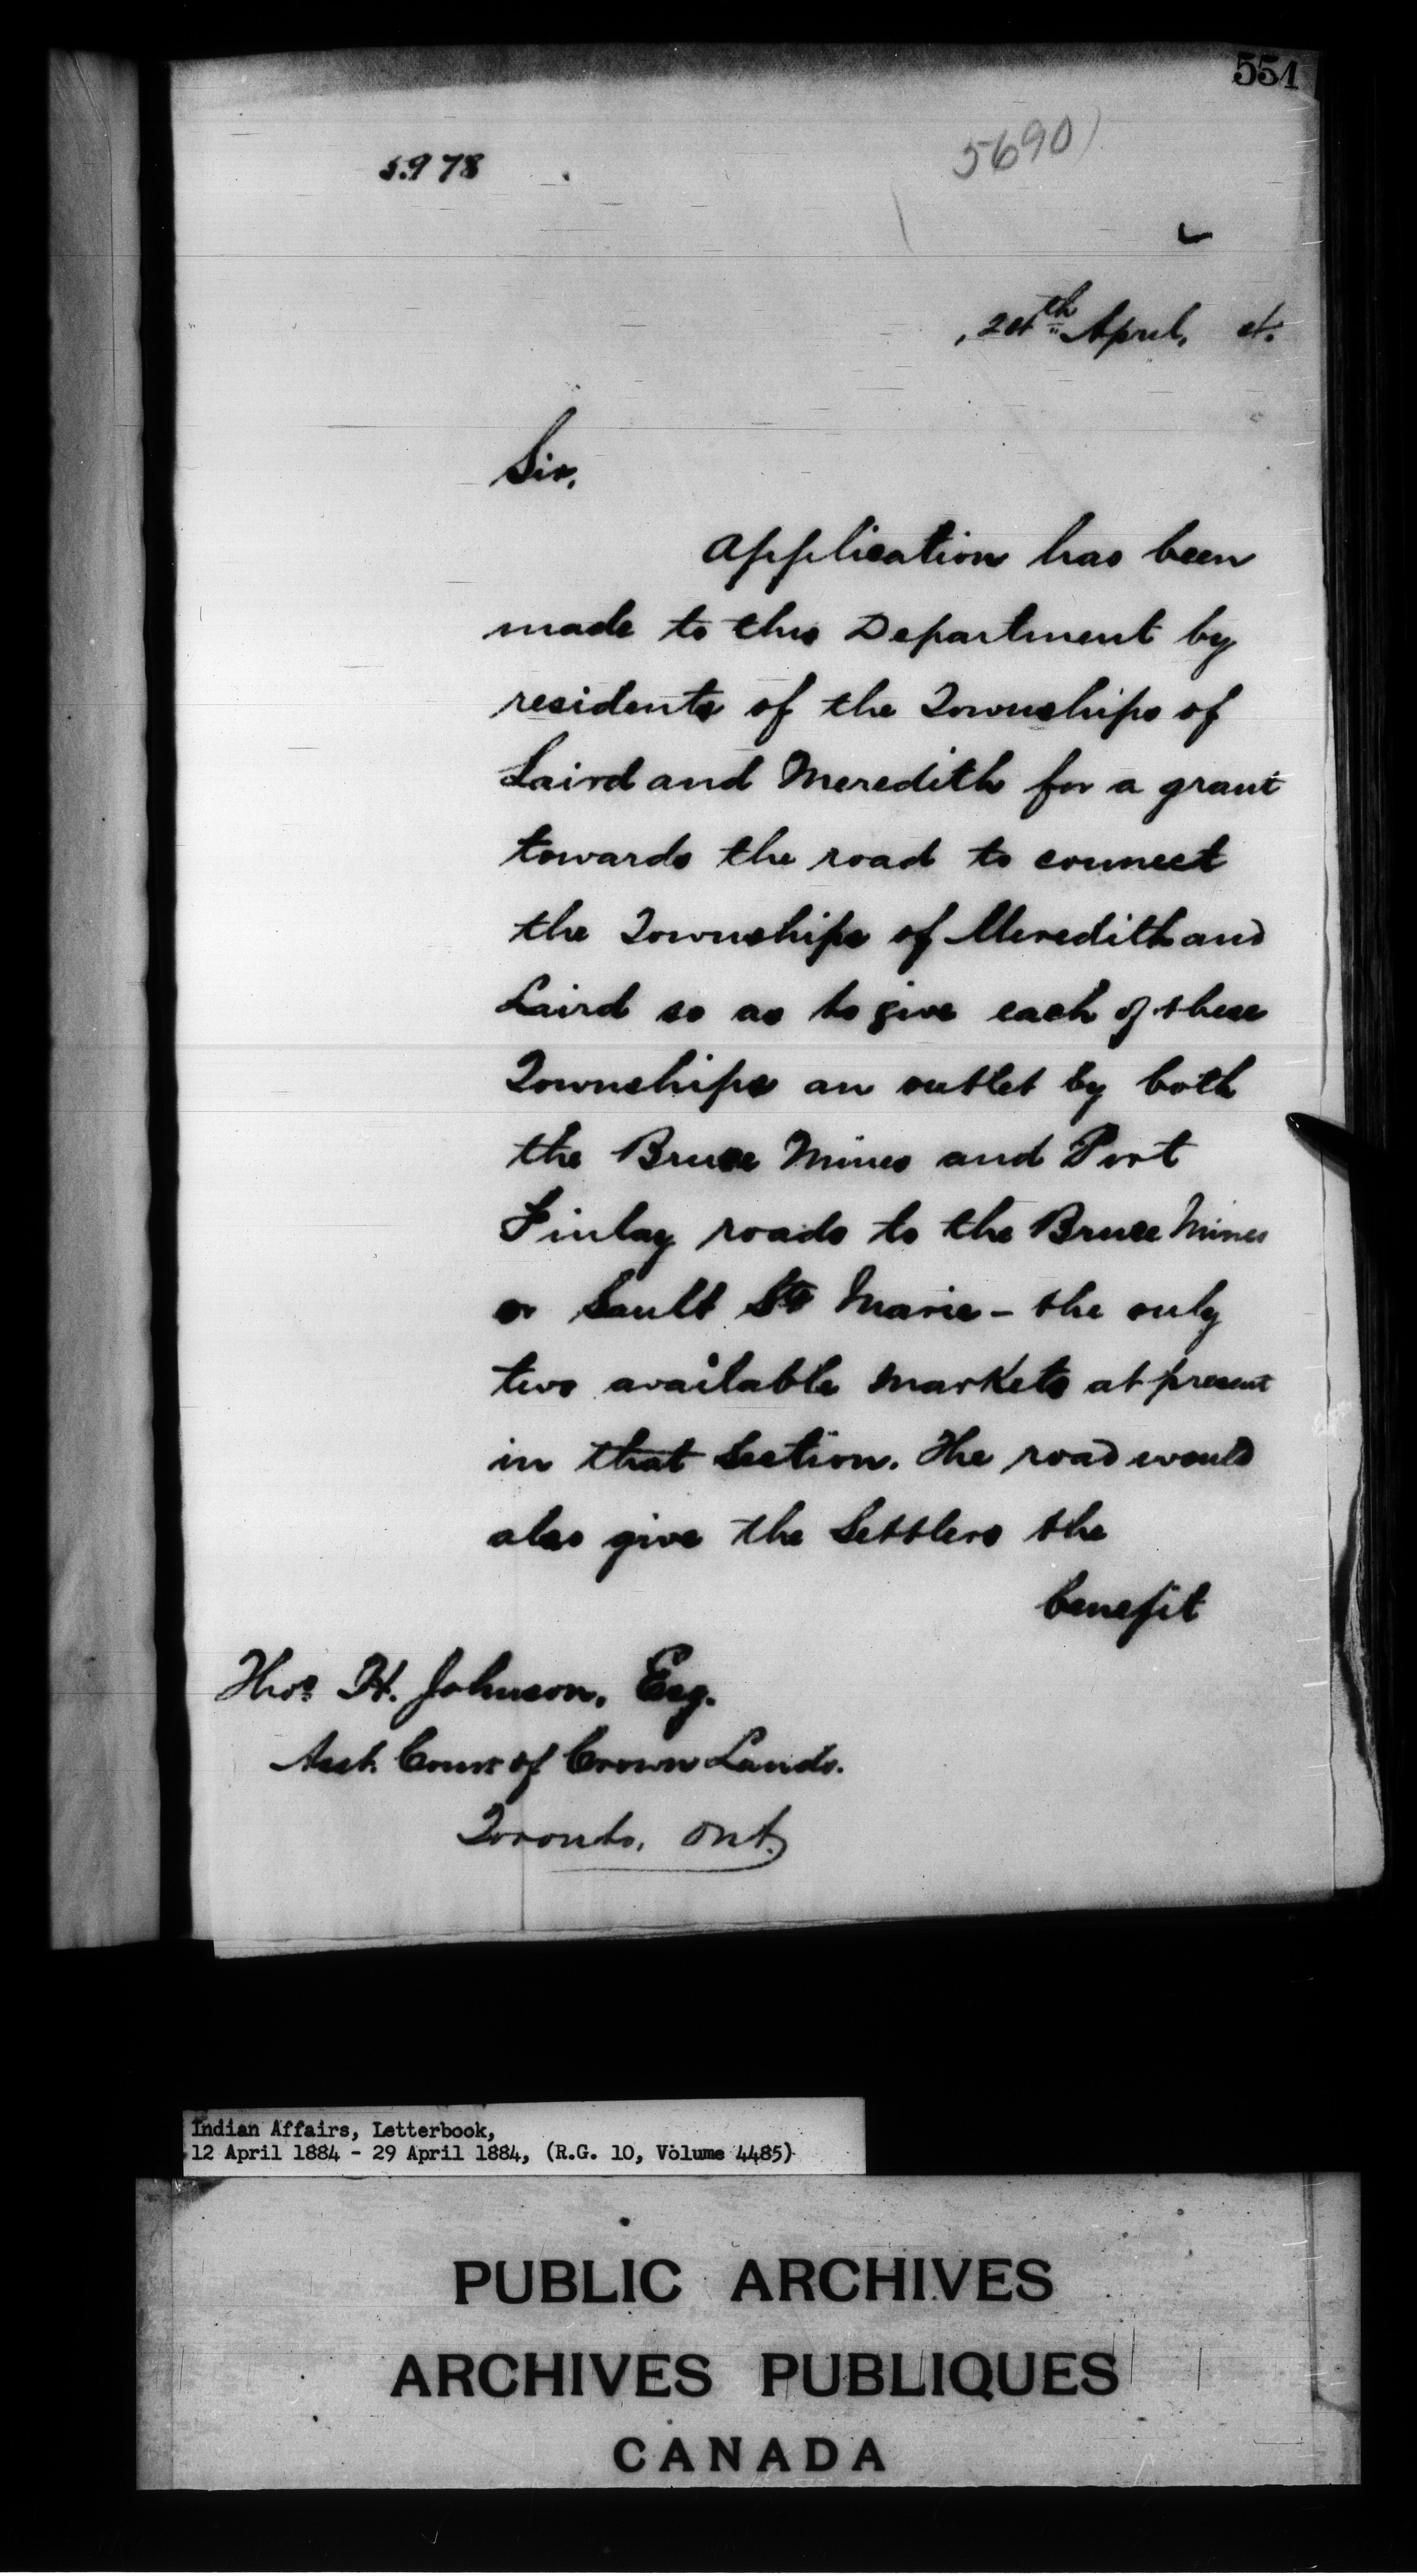 551
5978
5690
24th April, 4.
Sir,
Application has been
made to this Department by
residents of the Townships of
Laird and Meredith for a grant
towards the road to connect
the Townships of Meredith and
Laird so as to give each of these
Townships an outlet by both
the Bruce Mines and Port
Finlay roads to the Bruce Mines
or Sault Ste Marie - the only
two available markets at present
in that Section. The road would
also give the Settlers the
benefit
Thos. H. Johnson, Esq.
Asst. Comr of Crown Lands.
Toronto, Ont.
Indian Affairs, Letterbook,
12 April 1884 - 29 April 1884, (R.G. 10, Volume 4485)
PUBLIC ARCHIVES
ARCHIVES PUBLIQUES
CANADA